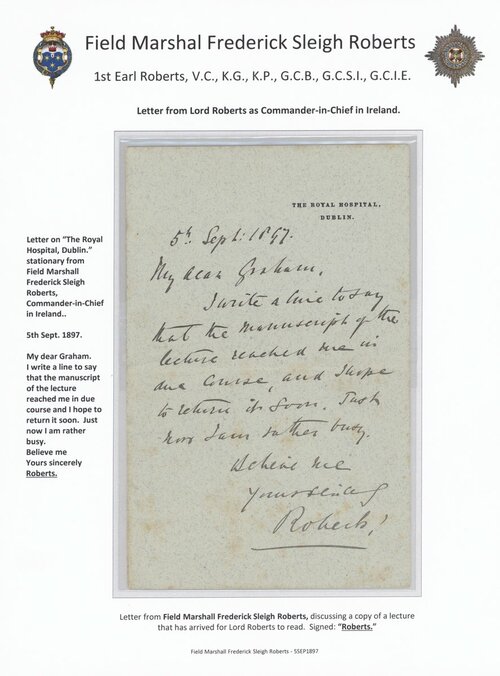 Field Marshal Frederick Sleigh Roberts
1st Earl Roberts, V.C., K.G., K.P., G.C.B., G.C.S.I., G.C.I.E.
Letter from Lord Roberts as Commander-in-Chief in Ireland.
Letter on "The Royal
Hospital, Dublin."
stationary from
Field Marshall
Frederick Sleigh
Roberts,
Commander-in-Chief
in Ireland..
5th Sept. 1897.
My dear Graham.
I write a line to say
that the manuscript
of the lecture
reached me in due
course and I hope to
return it soon. Just
now I am rather
busy.
Believe me
Yours sincerely
Roberts.
THE ROYAL HOSPITAL,
DUBLIN.
5th. Sept: 1897.
My dear Graham,
I write a line to say
that the manuscript of the
lecture reached me in
due course, and I hope
to return it soon. Just
now I am rather busy.
Believe me
Yours sincely
Roberts.
Letter from Field Marshall Frederick Sleigh Roberts, discussing a copy of a lecture
that has arrived for Lord Roberts to read. Signed: "Roberts."
Field Marshall Frederick Sleigh Roberts - 5SEP1897